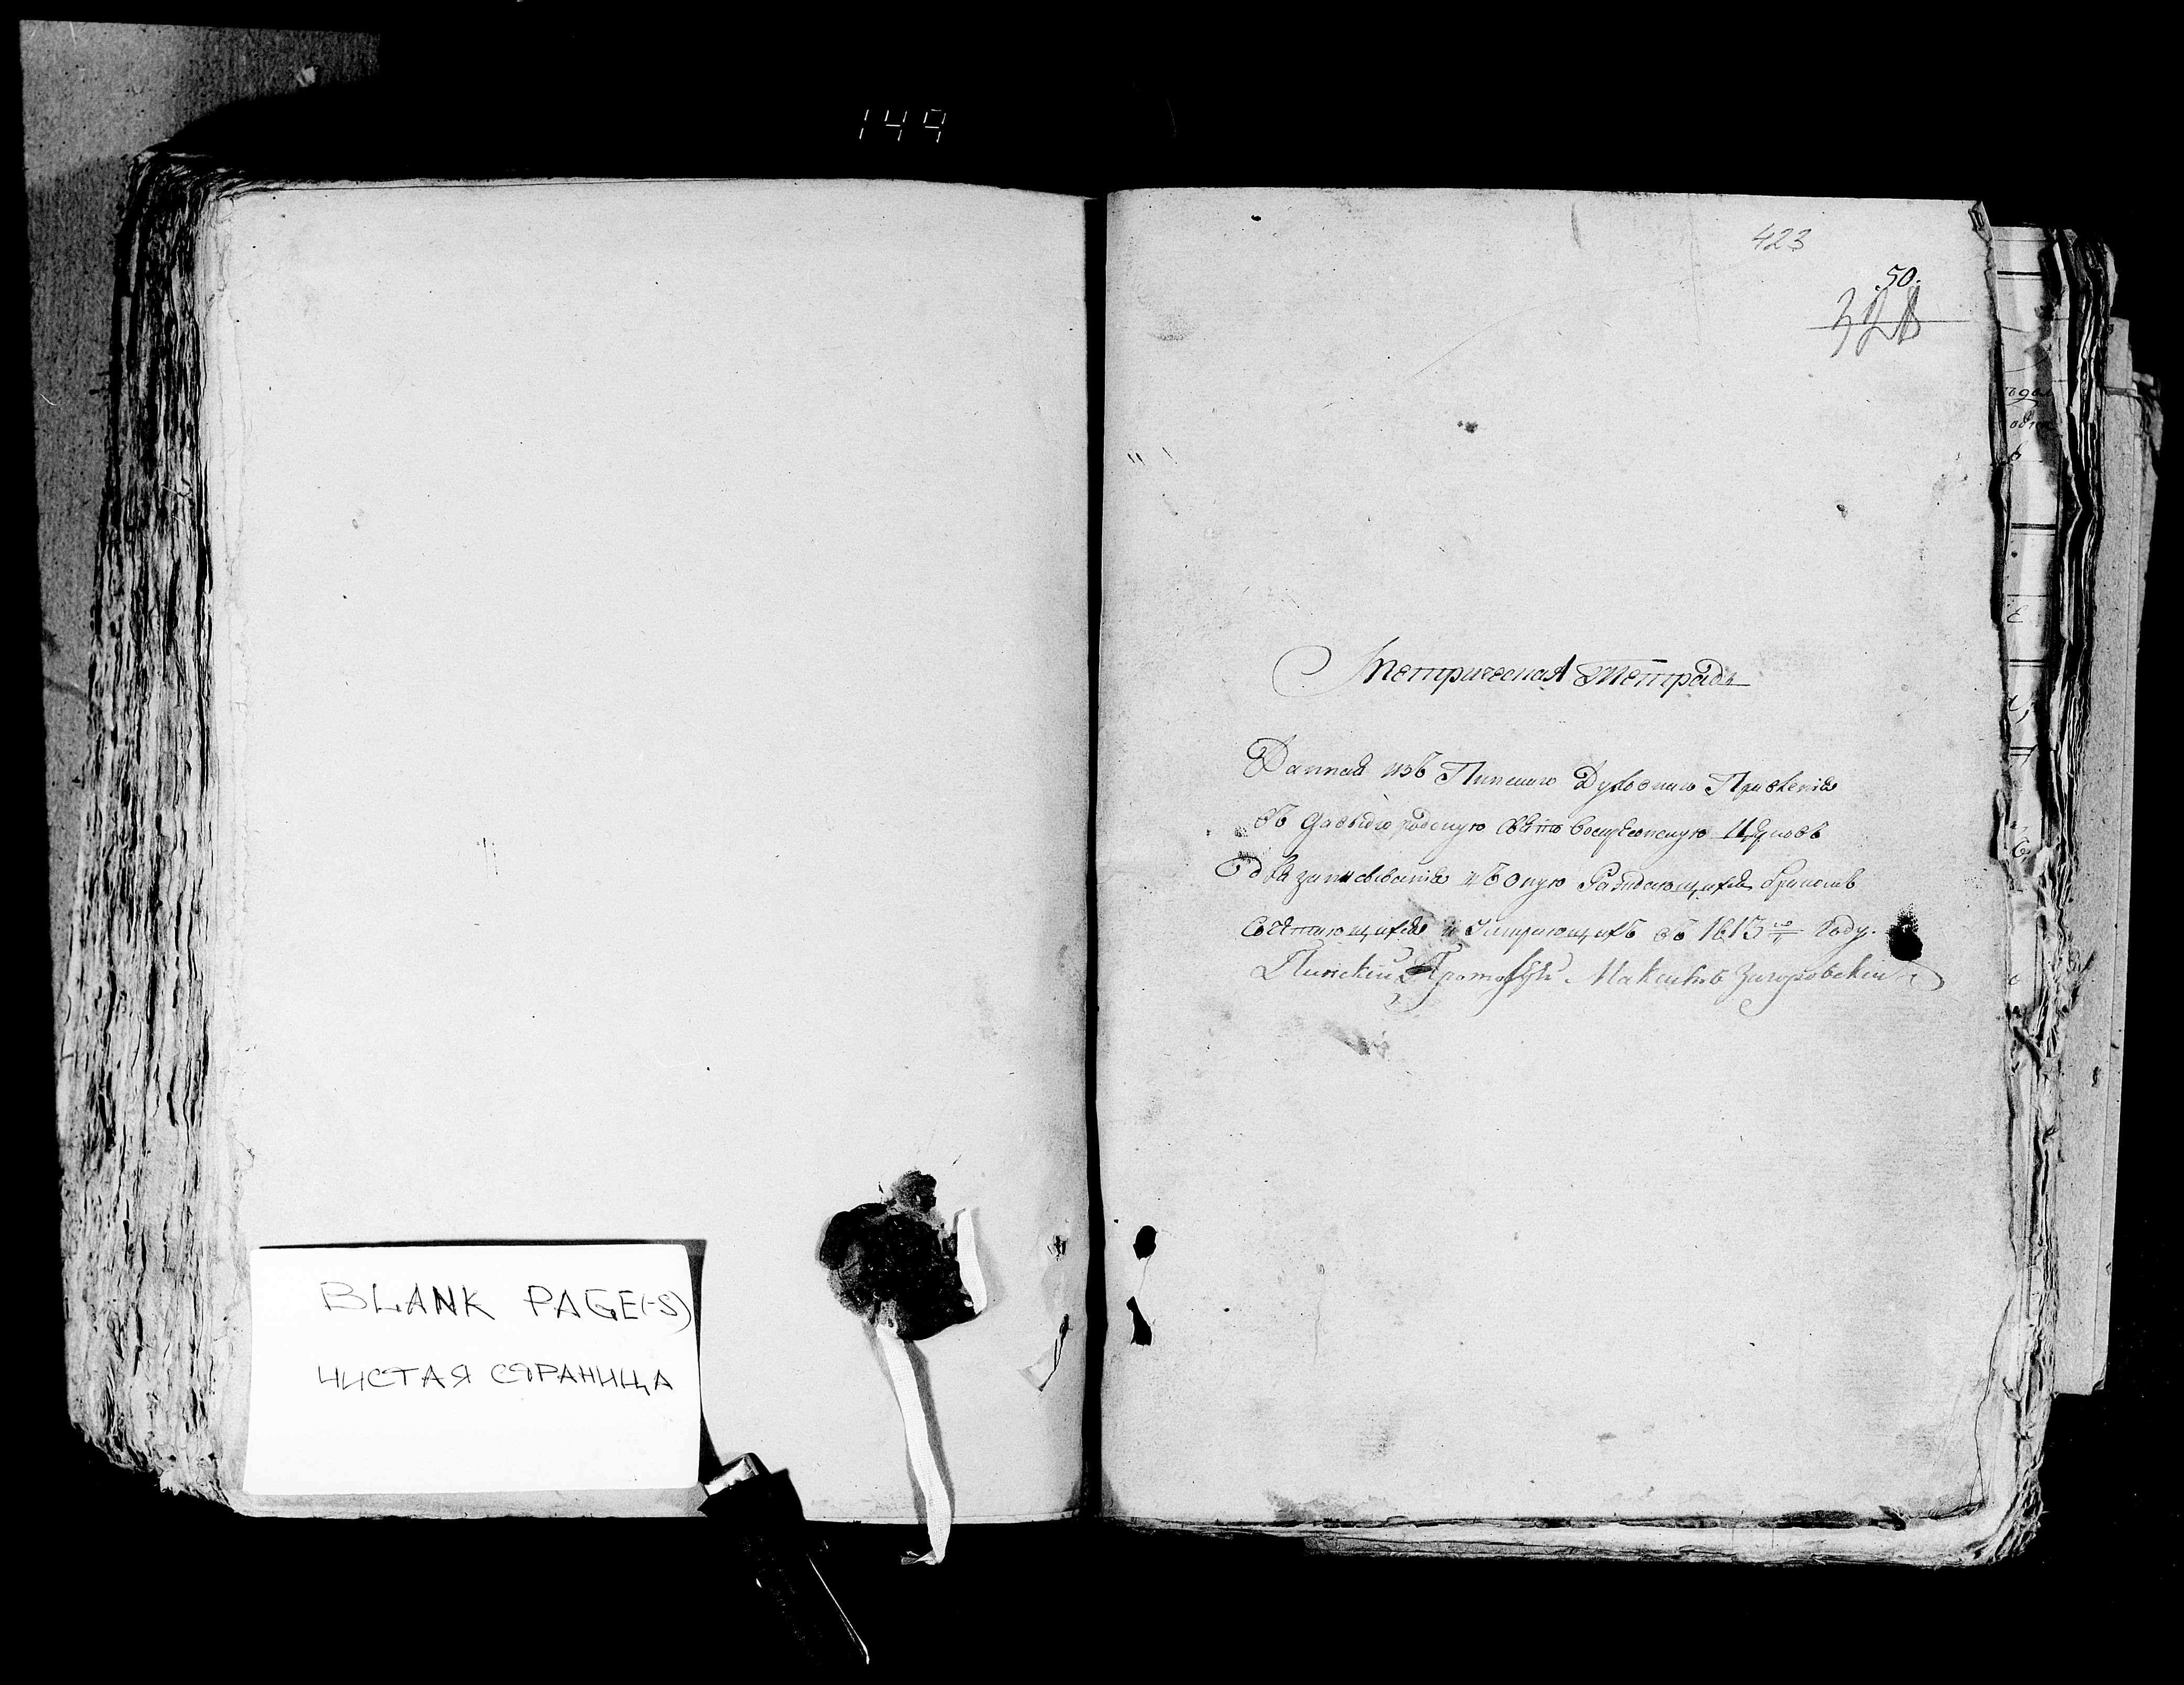 149
BLANK PAGE(-S)
ЧИСТАЯ СТРАНИЦА
423
50.
Метрическая тетрадь
Данная изъ Пинскаго Духовнаго Правленія
въ Давыдгородскую Свято Воскресенскую Церковь
Для записыванія въ оную Раждающихся бракомъ
Сочетающихся и Умирающихъ въ 1813го Году.
Пинскій Протоіерей Максимъ